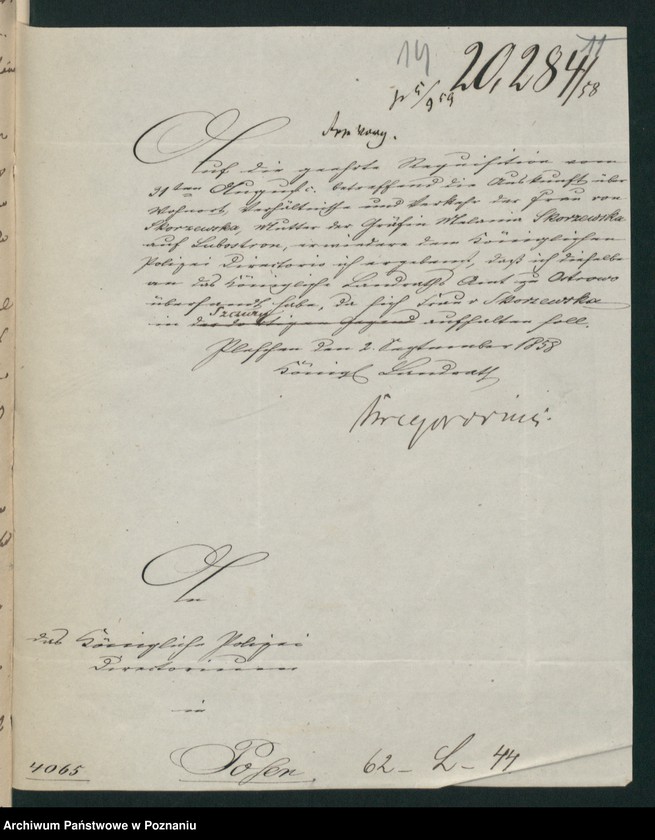 14
11
20,284/58
pr 5/9 59
Auf die geehrte Requisition vom
31ten August c. betreffend die Auskunft über
Wohnort, Verhältnisse und Verkehr der Frau von
Skorzewska, Mutter der Gräfin Melanie Skorzewska
auf Lubostron, erwiedere dem Königlichen
Polizei Directorio ich ergebenst, daß ich dieselbe
an das Königliche Landraths Amt zu Ostrowo
übersandt habe, da sich Frau v Skorzewska
in der dortigen Gegend aufhalten soll.
Pleschen den 2. September 1858
Königl Landrath
Gregorovius.
An
das Königliche Polizei
Directorium
in
Posen
4065
62 - L - 44
Archiwum Państwowe w Poznaniu